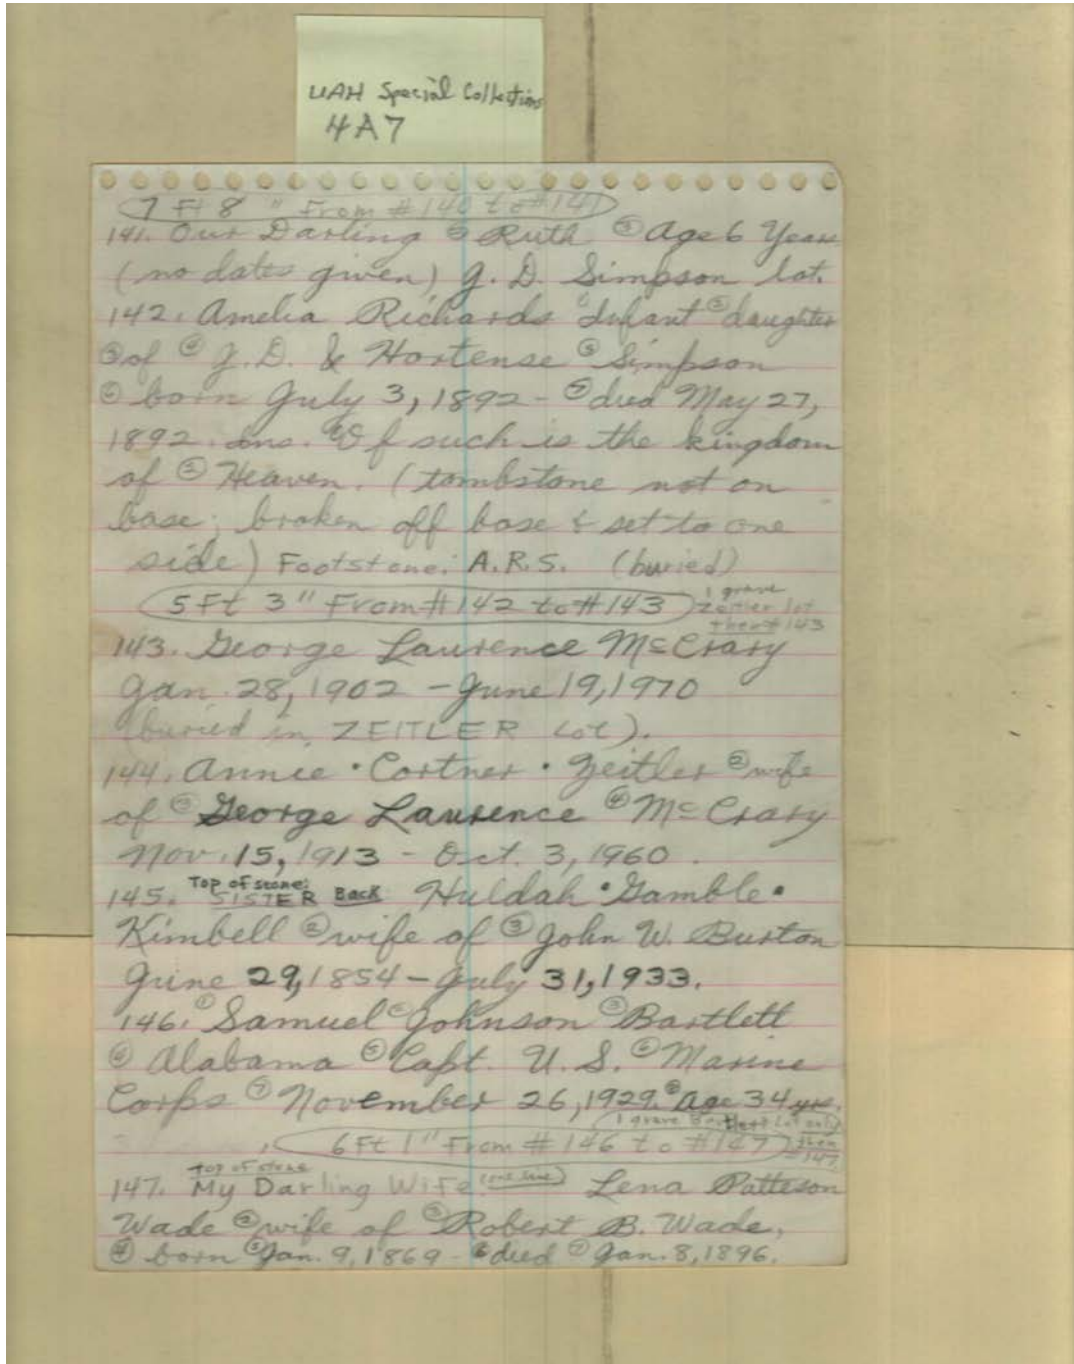 UAH Special Collections
4A7
7 Ft 8" From #140 to #141
141. Our Darling ② Ruth ③ Age 6 Years
(no dates given) J. D. Simpson lot.
142. Amelia Richards Infant ② daughter
③ of ④ J.D. & Hortense ⑤ Simpson
⑥ born July 3, 1892 - ⑦ died May 27,
1892. Ins. Of such is the kingdom
of ② Heaven. (tombstone not on
base; broken off base & set to one
side) Footstone: A.R.S. (buried)
5 Ft 3" From #142 to #143
1 grave
Zeitler lot
then #143
143. George Laurence McCrary
Jan. 28, 1902 - June 19, 1970
(buried in ZEITLER Lot).
144. Annie • Cortner • Zeitler ② wife
of ③ George Laurence ④ McCrary
Nov. 15, 1913 - Oct. 3, 1960.
145. Top of stone: SISTER Back Huldah • Gamble •
Kimbell ② wife of ③ John W. Burton
June 29, 1854 - July 31, 1933.
146. ① Samuel ② Johnson ③ Bartlett
④ Alabama ⑤ Capt. U. S. ⑥ Marine
Corps ⑦ November 26, 1929. ⑧ Age 34 yrs.
1 grave Bartlett Lot only
then
#147
6 Ft 1" From #146 to #147
top of stone
147. My Darling Wife (one line) Lena Patteson
Wade ② wife of ③ Robert B. Wade,
④ born ⑤ Jan. 9, 1869 - ⑥ died ⑦ Jan. 8, 1896.